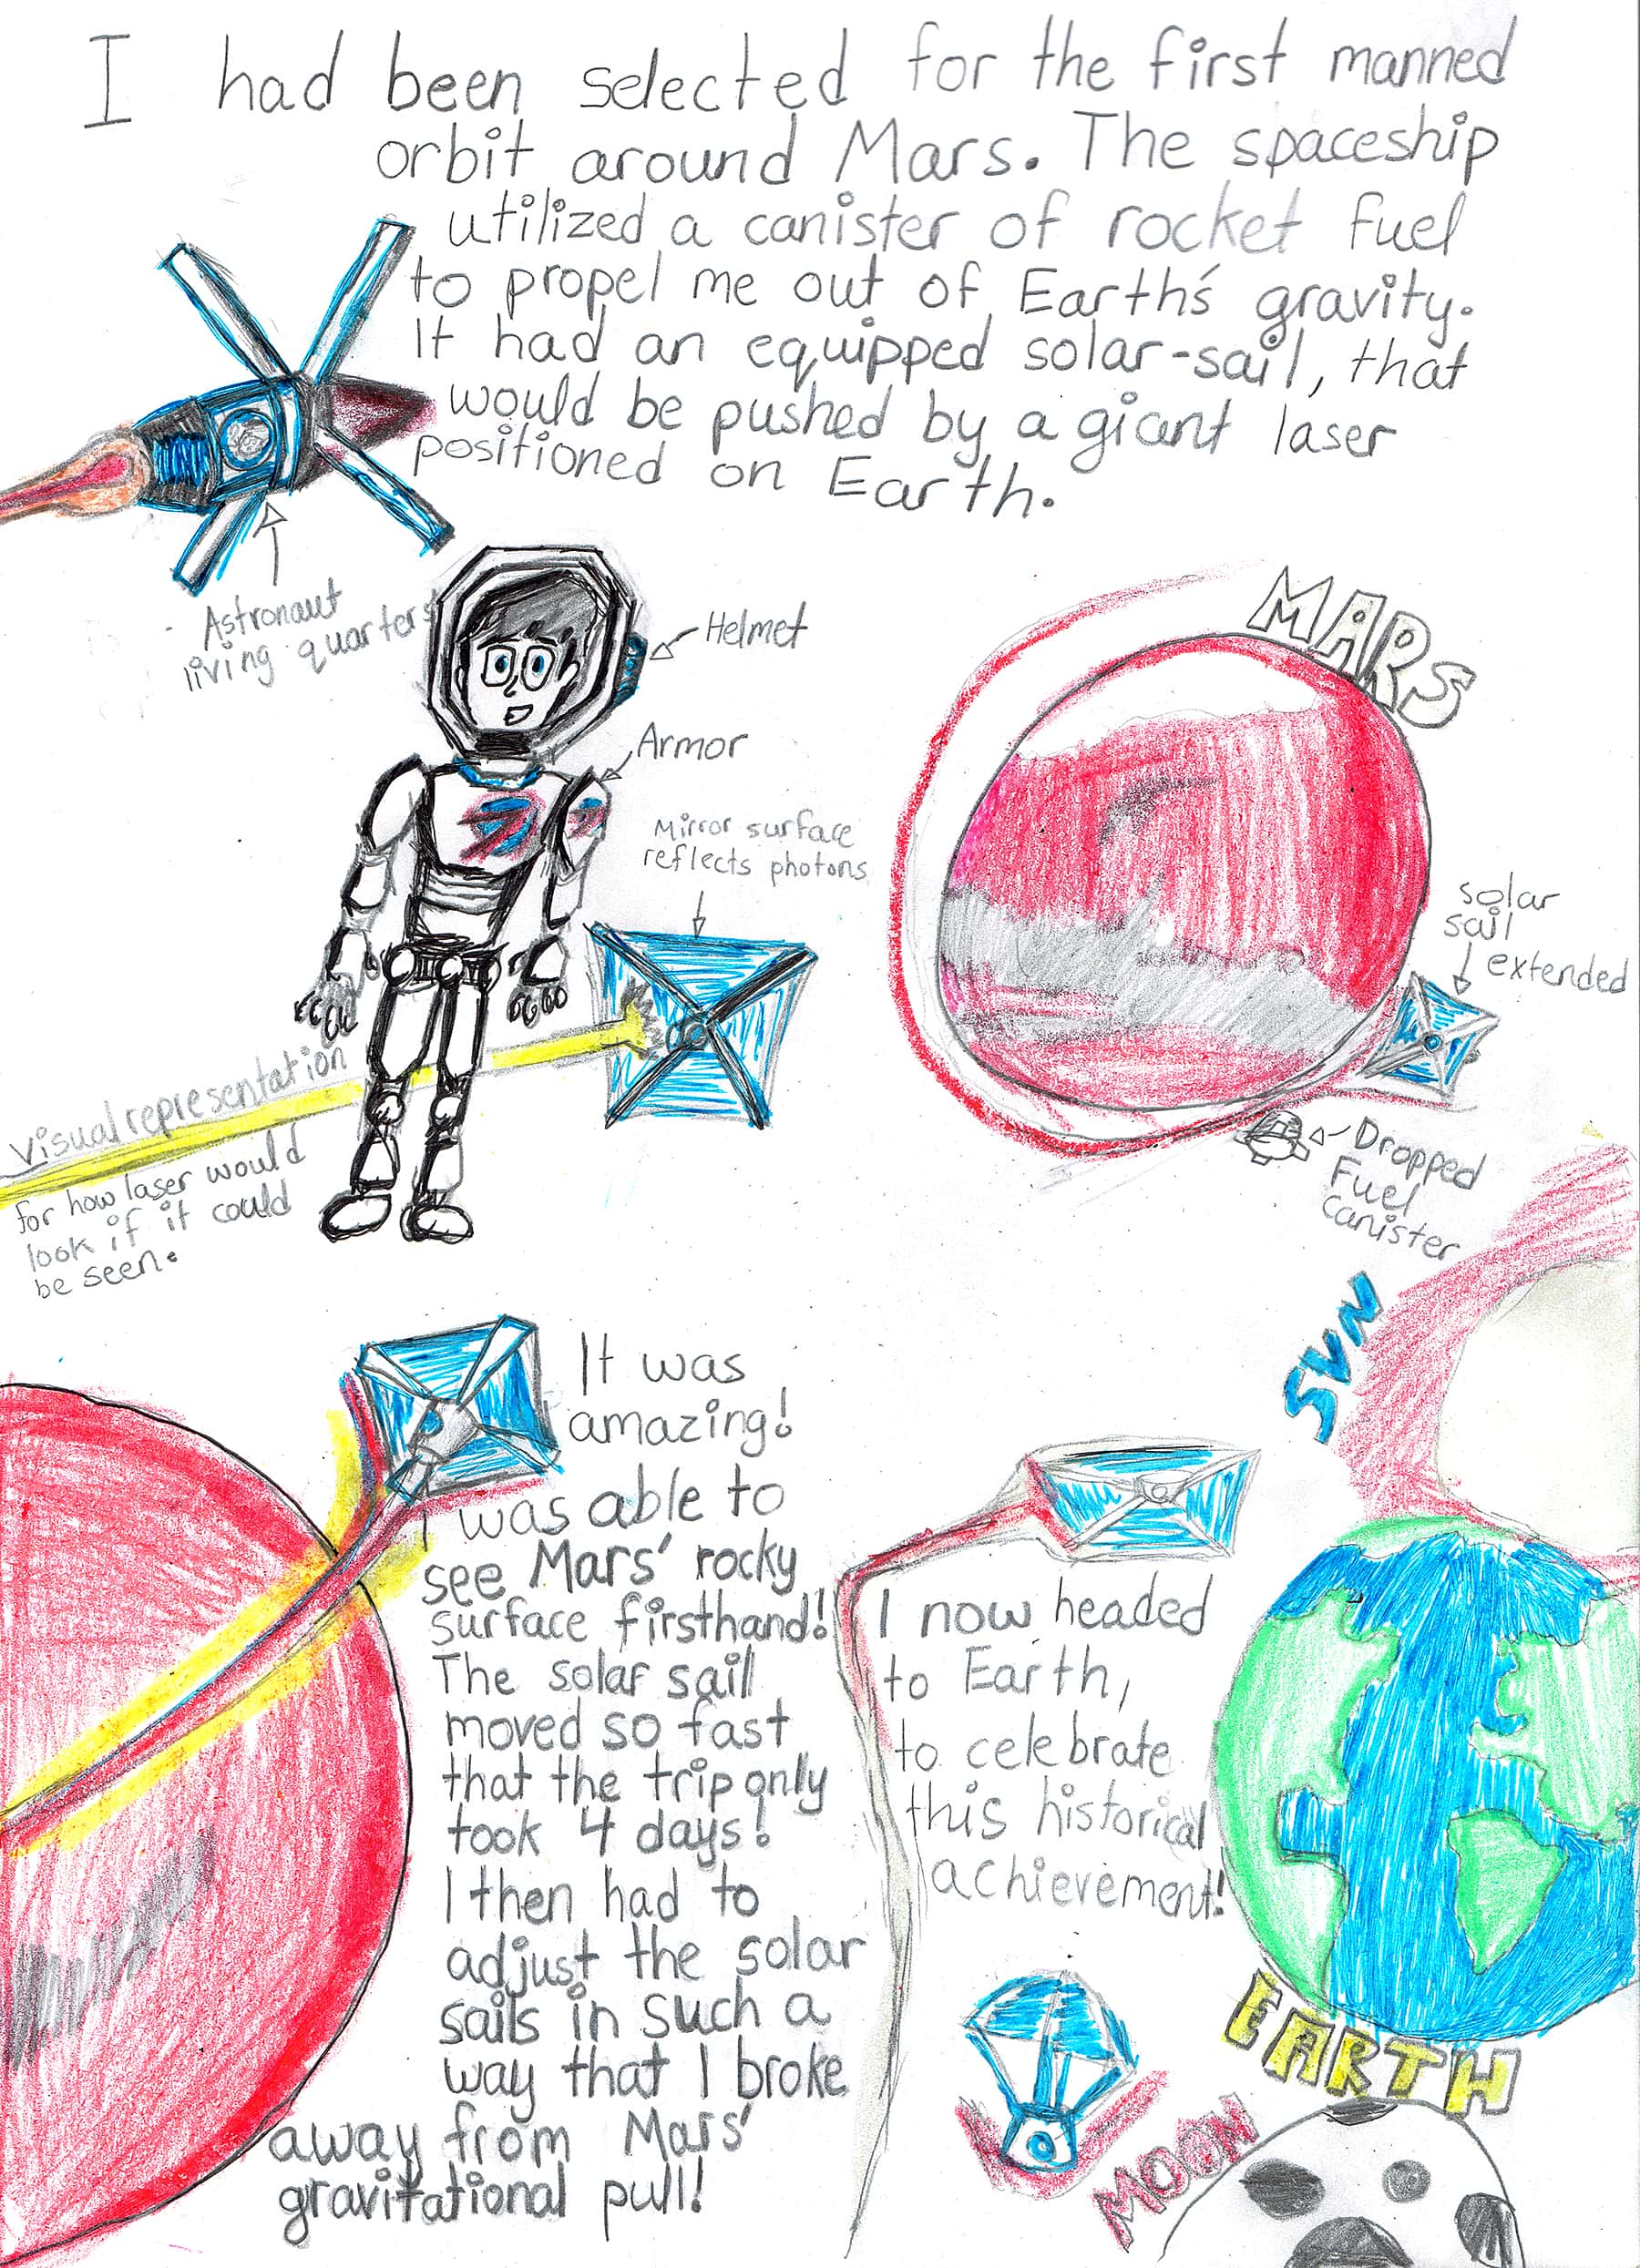 I had been selected for the first manned
orbit around Mars. The spaceship
utilized a canister of rocket fuel
to propel me out of Earth's gravity.
It had an equipped solar-sail, that
would be pushed by a giant laser
positioned on Earth.
Astronaut
living quarters
Helmet
Armor
Mirror surface
reflects photons
MARS
solar
sail
extended
Dropped
Fuel
Canister
visual representation
for how laser would
look if it could
be seen.
SUN
It was
amazing!
I was able to
see Mars' rocky
surface firsthand!
The solar sail
moved so fast
that the trip only
took 4 days!
I then had to
adjust the solar
sails in such a
way that I broke
away from Mars'
gravitational pull!
I now headed
to Earth,
to celebrate
this historical
achievement!
EARTH
MOON